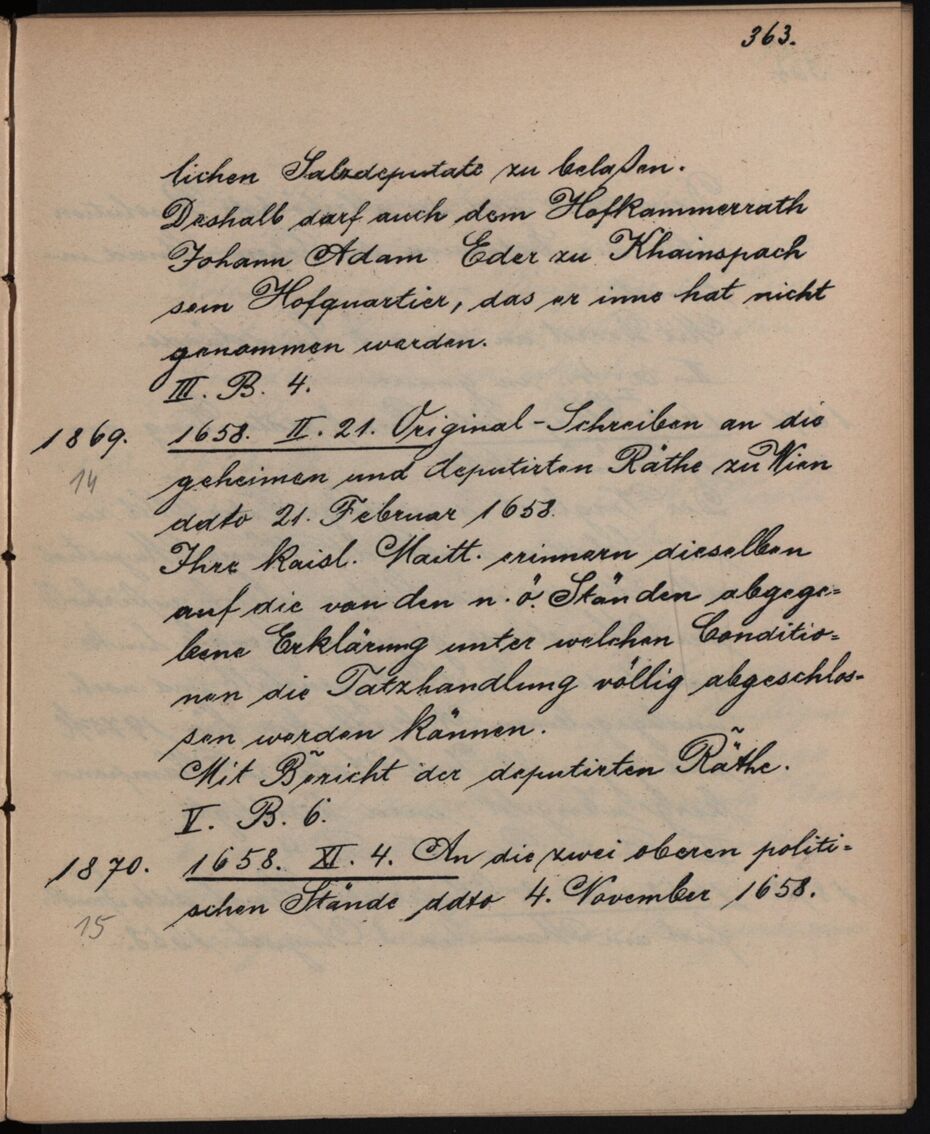 363.
lichen Salzdeputate zu belaßen.
Deshalb darf auch dem Hofkammerrath
Johann Adam Eder zu Khainspach
sein Hofquartier, das er inne hat nicht
genommen werden.
III. B. 4.
1869. 1658. II. 21. Original-Schreiben an die
14 geheimen und deputirten Räthe zu Wien
ddto 21. Februar 1658.
Ihre kaisl. Maitt. erinnern dieselben
auf die von den n. ö. Ständen abgege=
bene Erklärung unter welchen Conditio=
nen die Tatzhandlung völlig abgeschlos=
sen werden können.
Mit Bericht der deputirten Räthe.
V. B. 6.
1870. 1658. XI. 4. An die zwei oberen politi=
15 schen Stände ddto 4. November 1658.